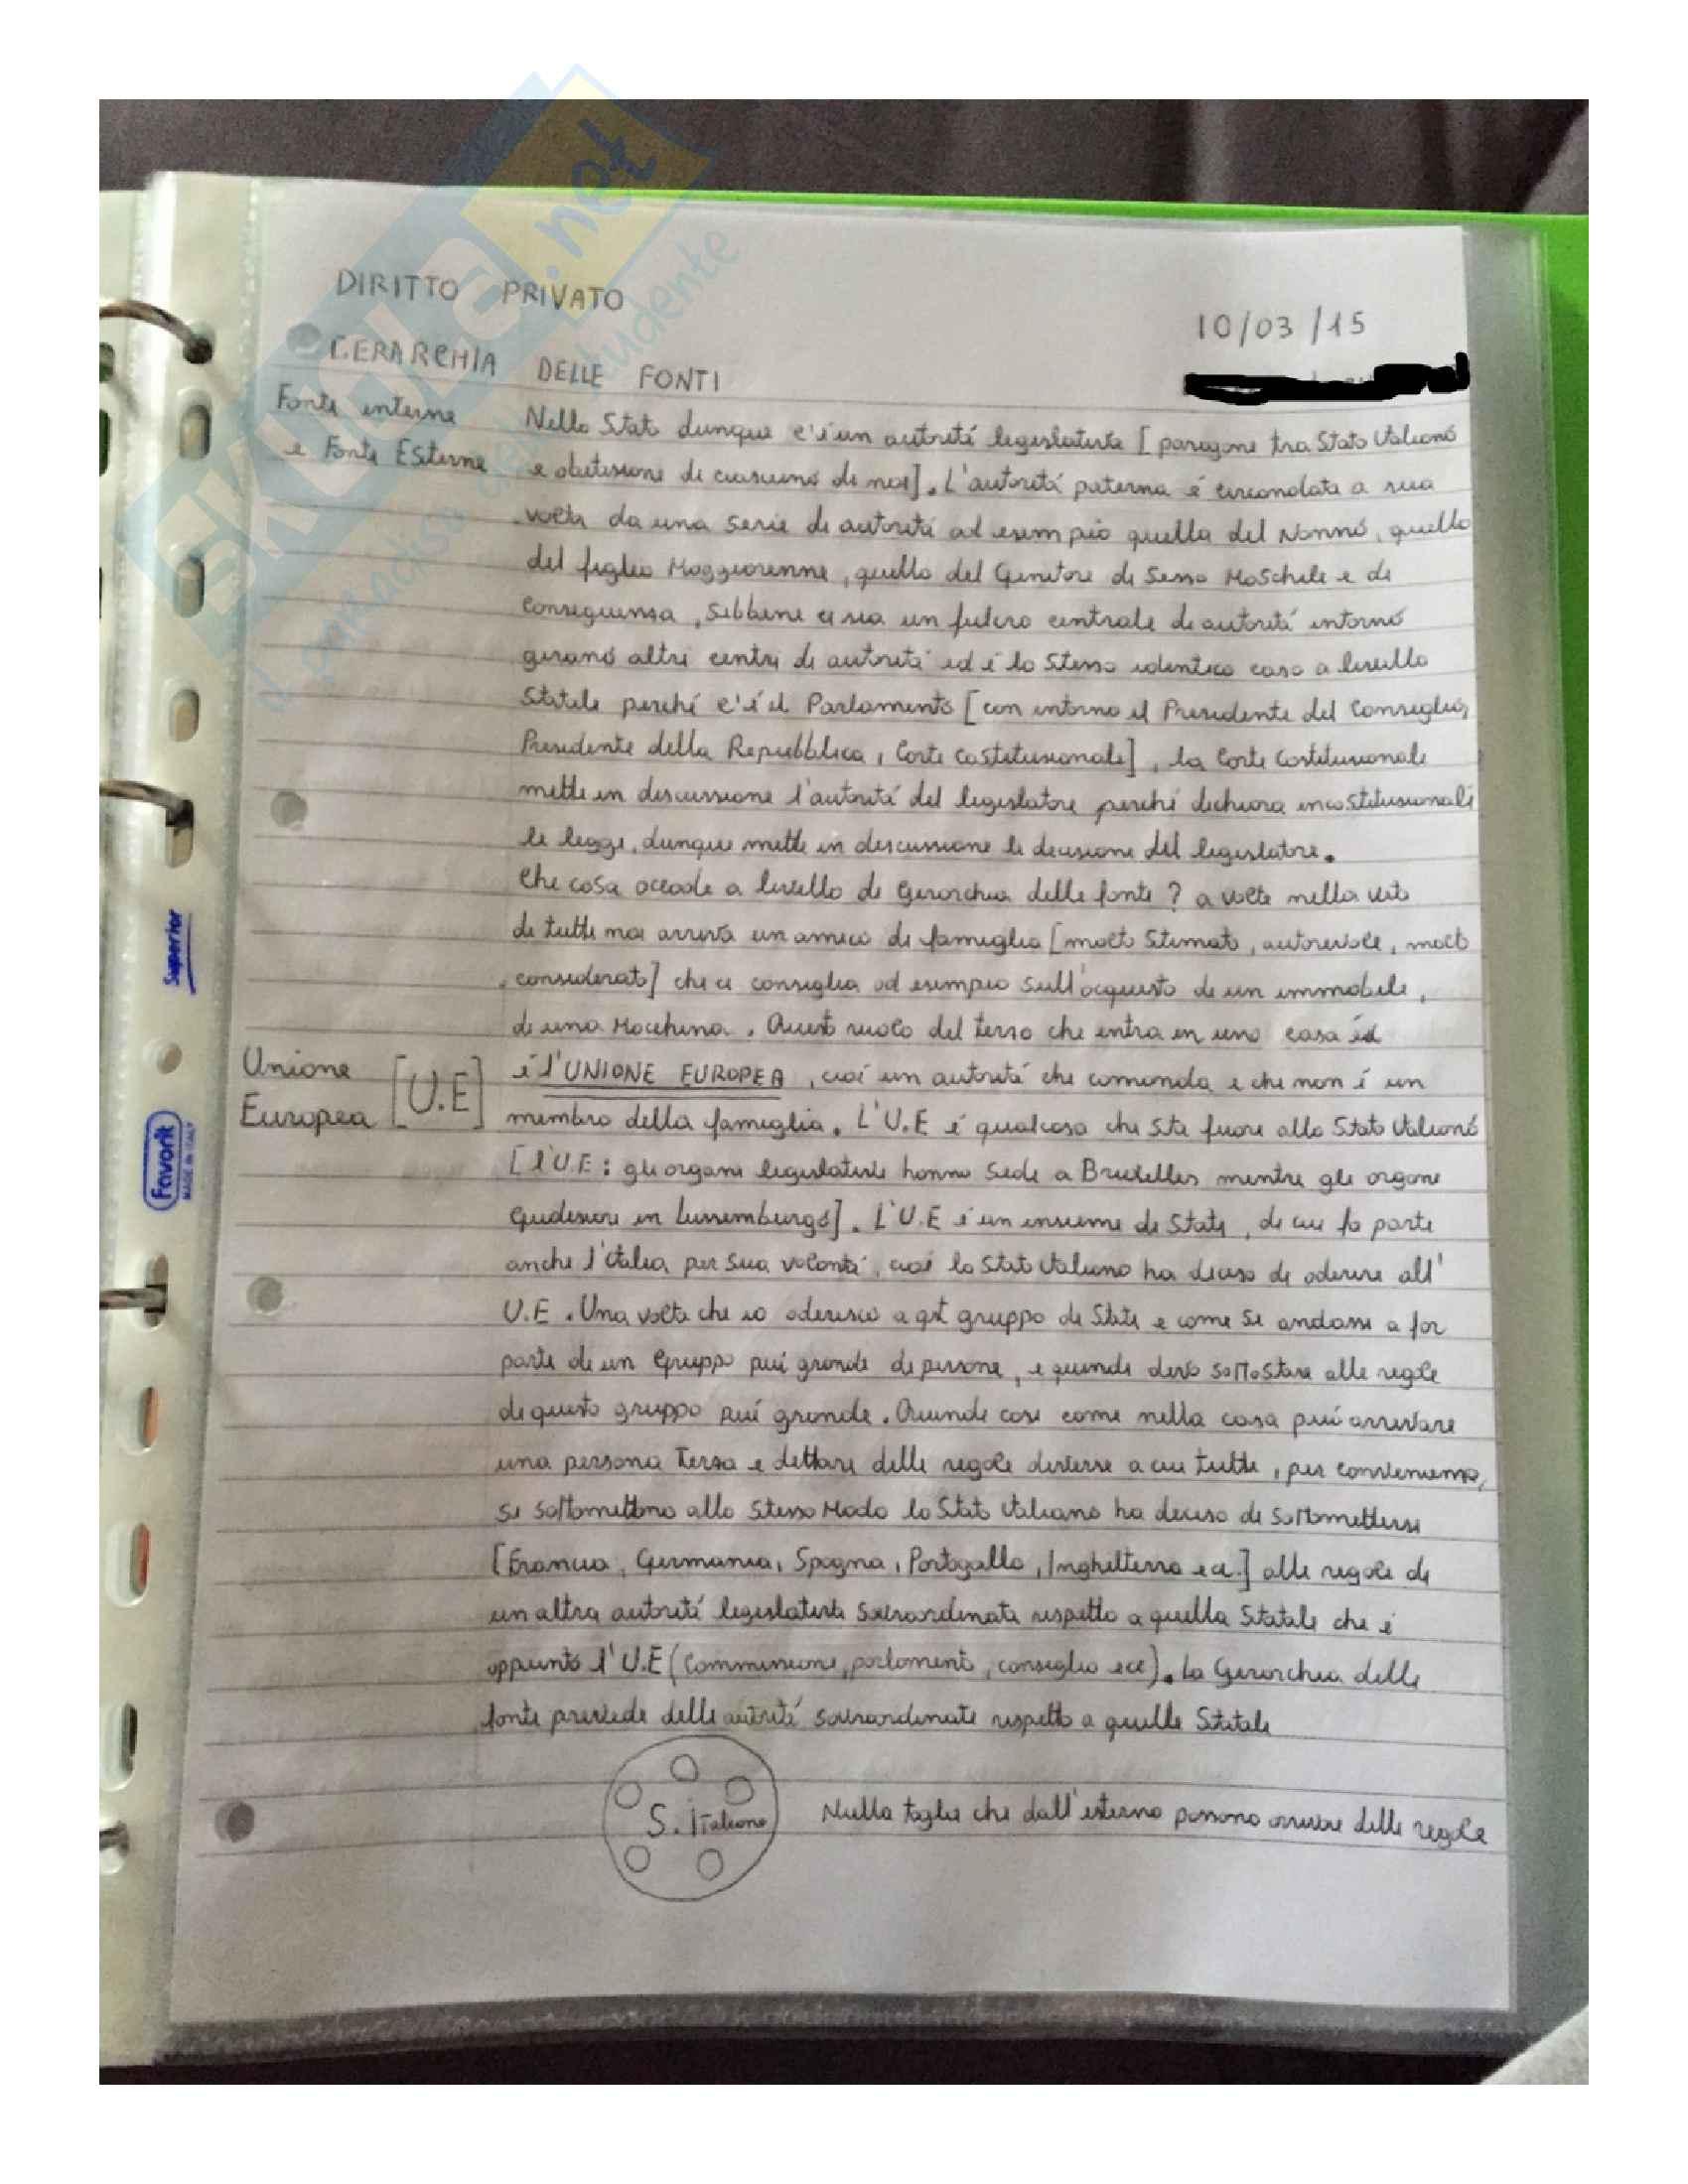 SKUOLA.net
il paradiso dello studente
DIRITTO PRIVATO
10/03/15
GERARCHIA DELLE FONTI
Fonti interne
e Fonti Esterne
Nello Stato dunque c'é un autoritá legislativa [paragone tra Stato Italiano
e abitazione di ciascuno di noi]. L'autoritá paterna é circondata a sua
volta da una serie di autoritá ad esempio quella del Nonno, quella
del figlio Maggiorenne, quello del Genitore di Sesso Maschile e di
conseguenza, sebbene ci sia un fulcro centrale di autoritá intorno
girano altri centri di autoritá ed é lo stesso identico caso a livello
Statale perché c'é il Parlamento [con intorno il Presidente del Consiglio,
Presidente della Repubblica, Corte Costituzionale], la Corte Costituzionale
mette in discussione l'autoritá del legislatore perché dichiara incostituzionali
le leggi, dunque mette in discussione le decisione del legislatore.
Che cosa accade a livello di Gerarchia delle fonti? a volte nella vita
di tutti noi arriva un amico di famiglia [molto stimato, autorevole, molto
considerato] che ci consiglia ad esempio sull'acquisto di un immobile,
di una Macchina. Questo ruolo del terzo che entra in una casa
Unione
Europea [U.E]
é l'UNIONE EUROPEA, cioé un autoritá che comanda e che non é un
membro della famiglia. L'U.E é qualcosa che sta fuori allo Stato Italiano
[l'U.E: gli organi legislativi hanno sede a Bruxelles mentre gli organi
Giudiziari in Lussemburgo]. L'U.E é un insieme di Stati, di cui fa parte
anche l'Italia per sua volontá, cioé lo Stato Italiano ha deciso di aderire all'
U.E. Una volta che io aderisco a qst gruppo di Stati e come se andassi a far
parte di un Gruppo piú grande di persone, e quindi devo sottostare alle regole
di questo gruppo piú grande. Quindi cosi come nella casa puó arrivare
una persona Terza e dettare delle regole diverse a cui tutti, per convenienza,
si sottomettono allo stesso Modo lo Stato Italiano ha deciso di sottomettersi
[Francia, Germania, Spagna, Portogallo, Inghilterra ecc.] alle regole di
un altra autoritá legislativa sovraordinata rispetto a quella Statale che é
appunto l'U.E (Commissione, parlamento, consiglio ecc). La Gerarchia delle
fonti prevede delle autoritá sovraordinate rispetto a quelle Statale
S. Italiano
Nulla toglie che dall'esterno possono arrivare delle regole
Superior
Favorit
MADE IN ITALY